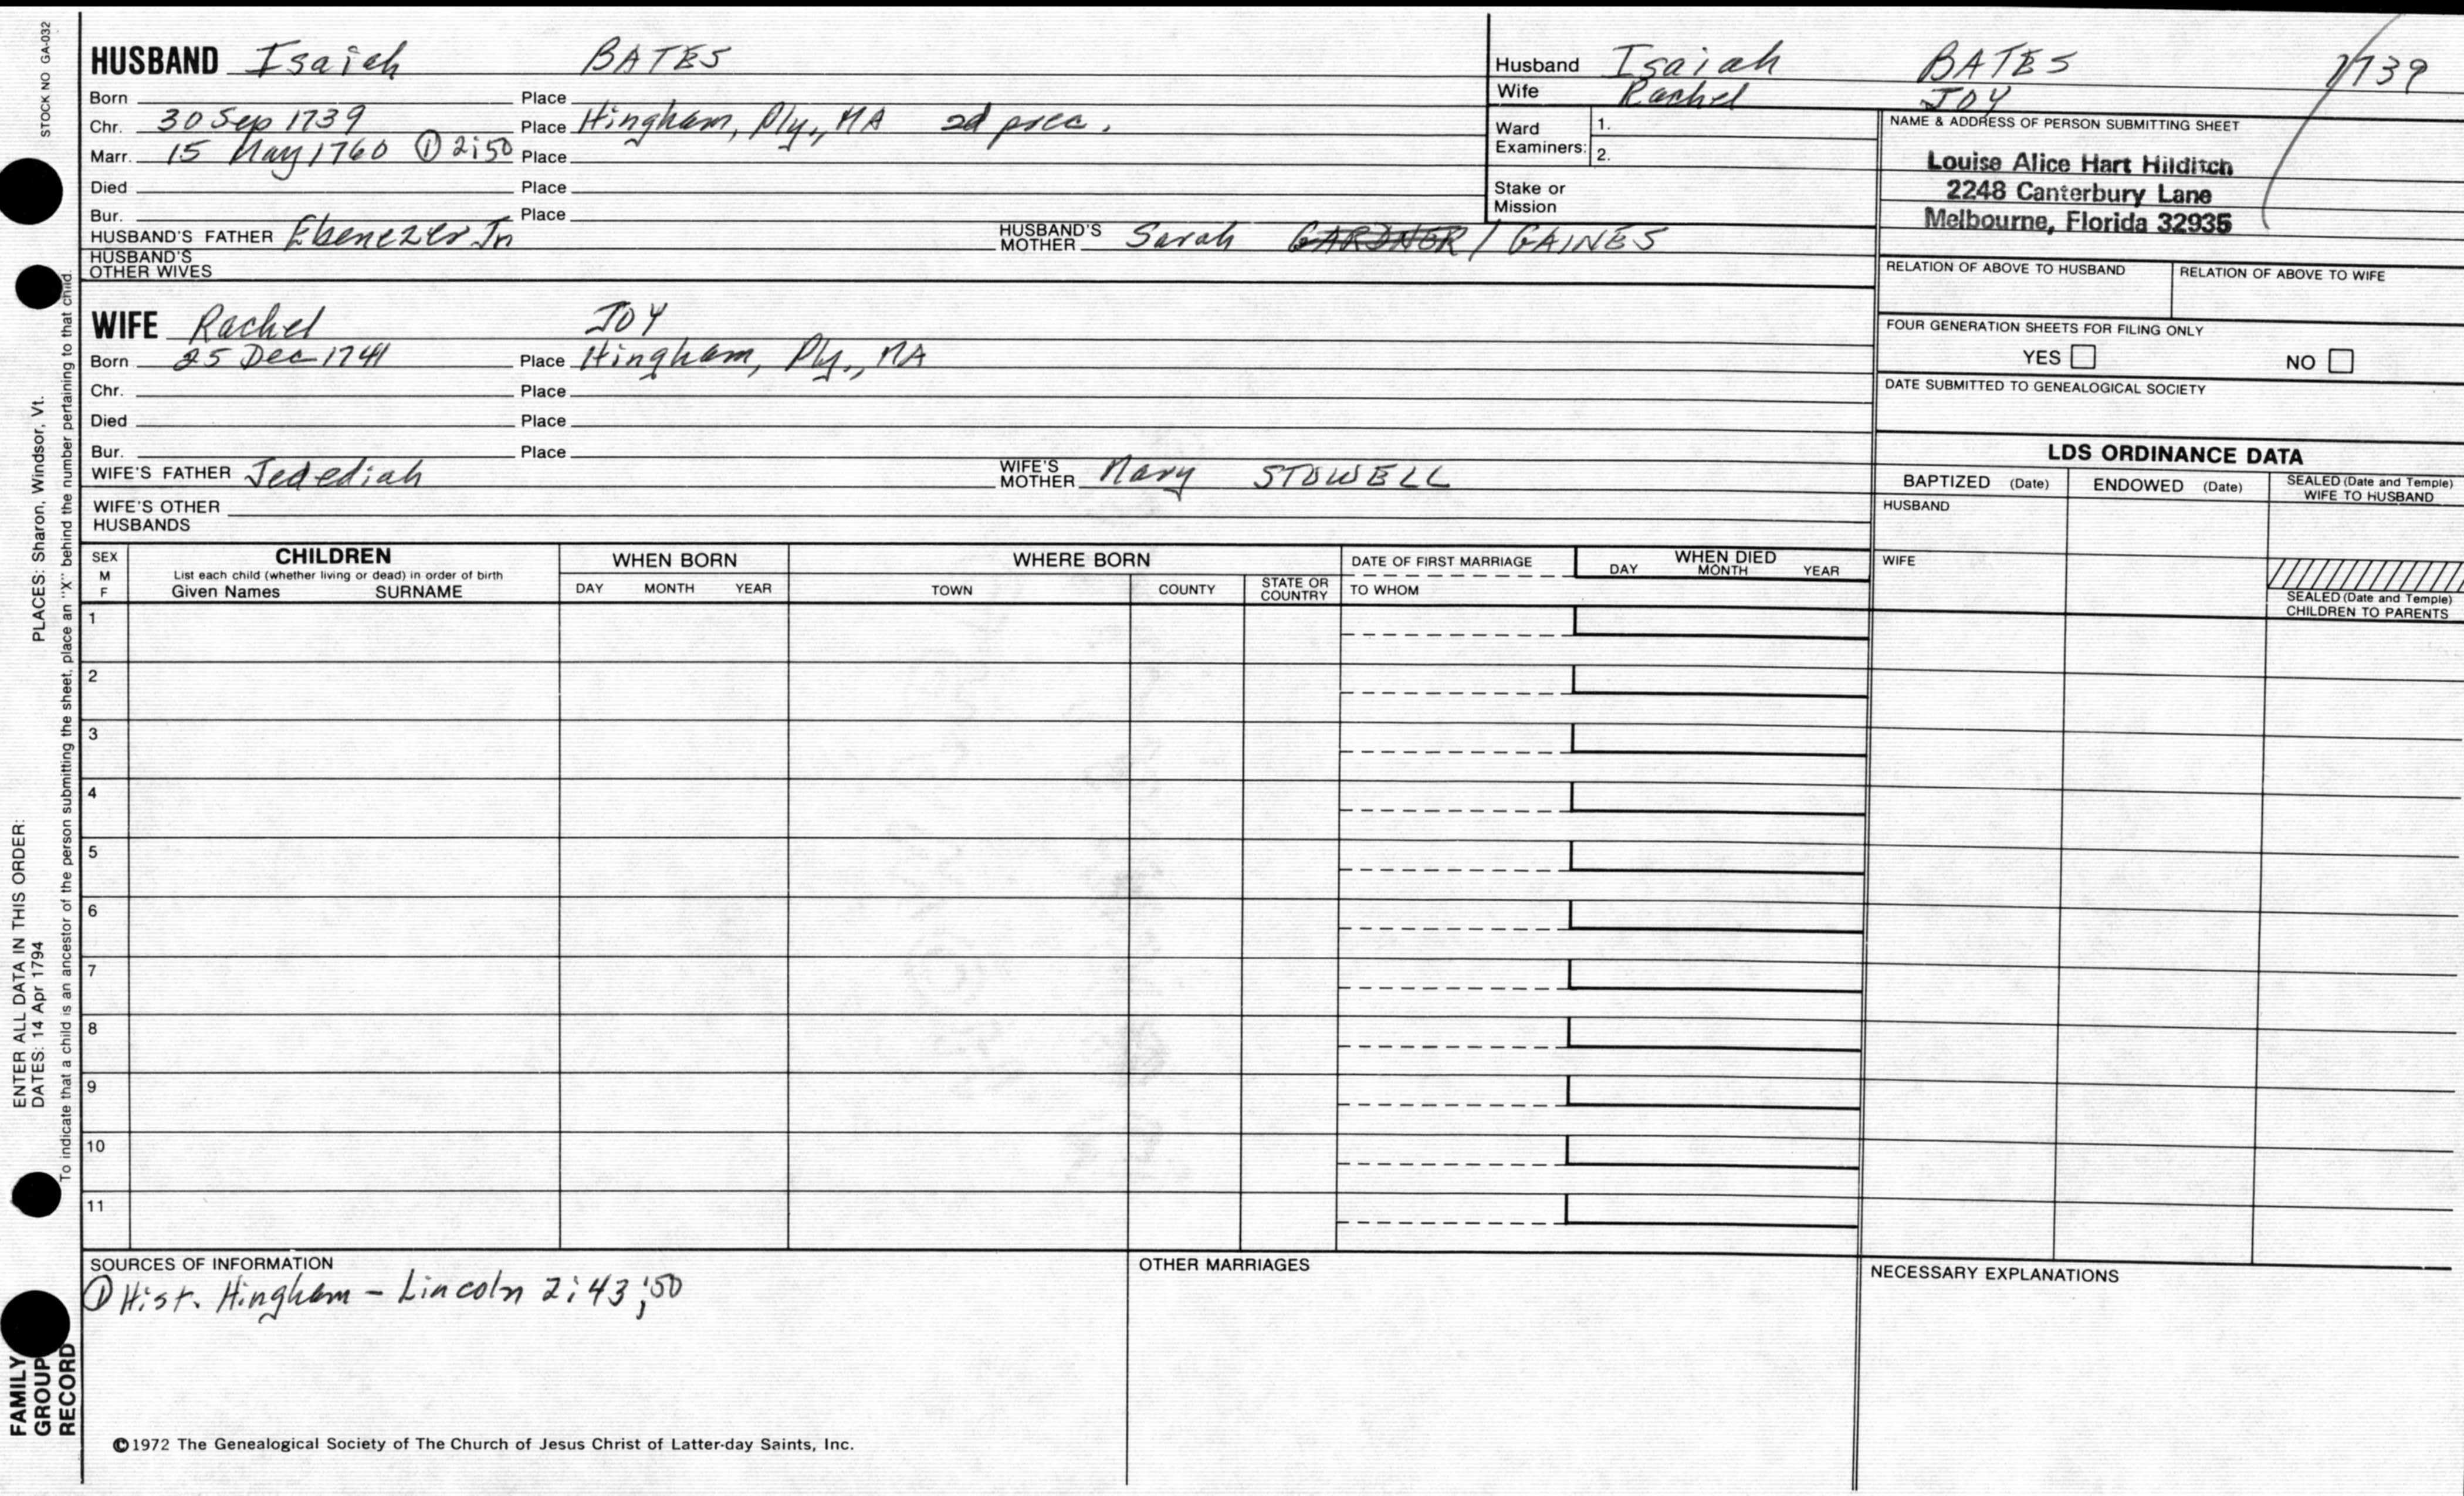 STOCK NO GA-032
HUSBAND Isaiah BATES
Born Place
Chr. 30 Sep 1739 Place Hingham, Ply., MA 2d prec.
Marr. 15 May 1760 ① 2:50 Place
Died Place
Bur. Place
HUSBAND'S FATHER Ebenezer Jr HUSBAND'S MOTHER Sarah GARDNER / GAINES
HUSBAND'S OTHER WIVES
Husband Isaiah BATES 1739
Wife Rachel JOY
Ward Examiners: 1.
2.
Stake or Mission
NAME & ADDRESS OF PERSON SUBMITTING SHEET
Louise Alice Hart Hilditch
2248 Canterbury Lane
Melbourne, Florida 32935
RELATION OF ABOVE TO HUSBAND RELATION OF ABOVE TO WIFE
FOUR GENERATION SHEETS FOR FILING ONLY
YES NO
DATE SUBMITTED TO GENEALOGICAL SOCIETY
WIFE Rachel JOY
Born 25 Dec 1741 Place Hingham, Ply., MA
Chr. Place
Died Place
Bur. Place
WIFE'S FATHER Jedediah WIFE'S MOTHER Mary STOWELL
WIFE'S OTHER HUSBANDS
LDS ORDINANCE DATA
BAPTIZED (Date) ENDOWED (Date) SEALED (Date and Temple) WIFE TO HUSBAND
HUSBAND
WIFE
SEALED (Date and Temple) CHILDREN TO PARENTS
SEX M F
CHILDREN
List each child (whether living or dead) in order of birth
Given Names SURNAME
WHEN BORN
DAY MONTH YEAR
WHERE BORN
TOWN COUNTY STATE OR COUNTRY
DATE OF FIRST MARRIAGE
TO WHOM
WHEN DIED
DAY MONTH YEAR
1
2
3
4
5
6
7
8
9
10
11
SOURCES OF INFORMATION
① Hist. Hingham - Lincoln 2:43;50
OTHER MARRIAGES
NECESSARY EXPLANATIONS
©1972 The Genealogical Society of The Church of Jesus Christ of Latter-day Saints, Inc.
ENTER ALL DATA IN THIS ORDER:
DATES: 14 Apr 1794 PLACES: Sharon, Windsor, Vt.
To indicate that a child is an ancestor of the person submitting the sheet, place an "X" behind the number pertaining to that child.
FAMILY GROUP RECORD